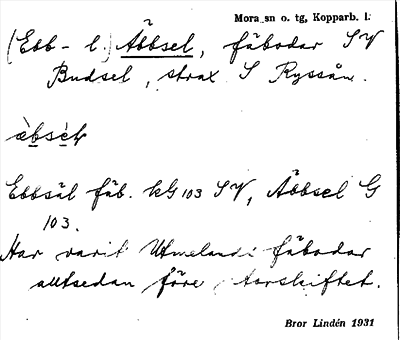 Mora sn o. tg, Kopparb. l.
(Ebb- l.) Äbbsel, fäbodar SV
Budsel, strax S Ryssån.
Ebbsäl fäb. kG 103 SV, Äbbsel G
103.
Har varit Utmelands fäbodar
alltsedan före storskiftet.
Bror Lindén 1931